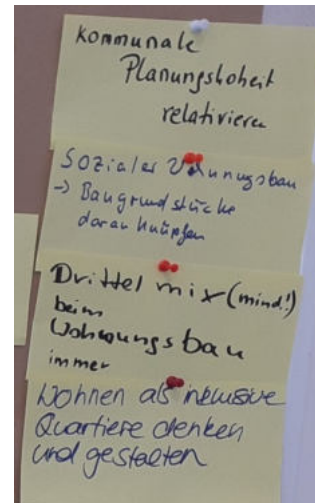 kommunale
Planungshoheit
relativieren
Sozialer Wohnungsbau
-> Baugrundstücke
daran knüpfen
Drittel mix (mind!)
beim
Wohnungsbau
immer
Wohnen als inklusive
Quartiere denken
und gestalten